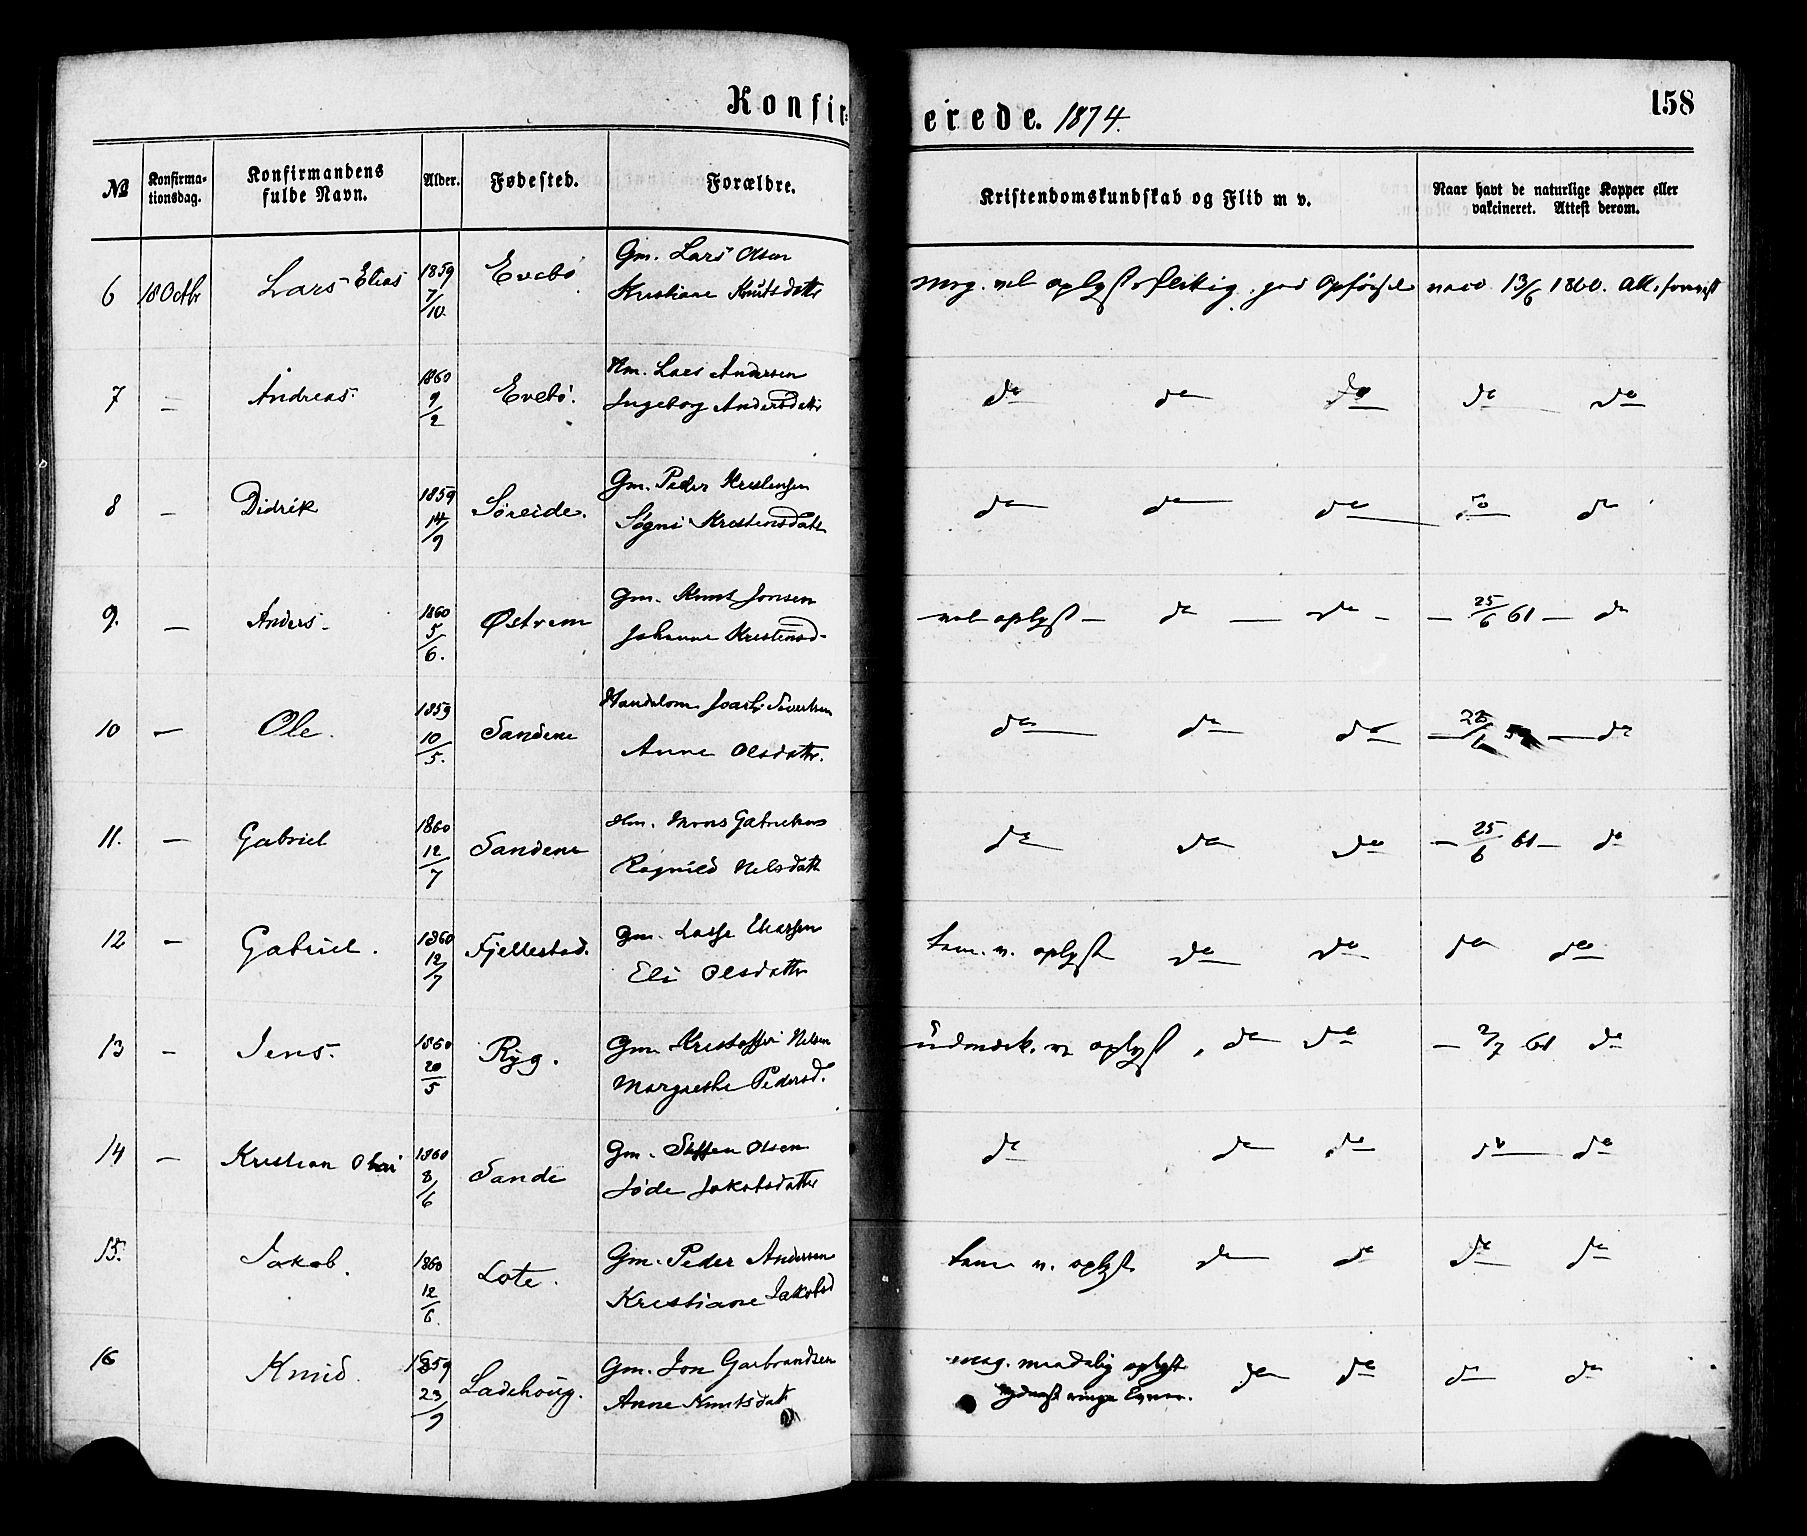 Konfir- erede. 1874. 158
№ Konfirma- tionsdag. Konfirmandens fulde Navn. Alder. Fødested. Forældre. Kristendomskundskab og Flid m v. Naar havt de naturlige Kopper eller vakcineret. Attest derom.
6 18 Octbr Lars Elias 1859 7/10 Evebø Gm. Lars Olsen
Kristiane Knutsdatter meg. vel oplyst flitig. god Opførsel vacc 13/6 1860. Att.
7 — Andreas 1860 9/2 Evebø. Hm. Lars Andersen
Ingeborg Andersdatter do do do do do
8 — Didrik 1859 14/9 Søreide. Gm. Peder Kristensen
Søgni Kristensdatt do do do do do
9. — Anders 1860 5/6. Østrem Gm. Knut Jonsen
Johanne Kristensd. vel oplyst — do — do — 25/6 61 — do
10 — Ole. 1859 10/5. Sandene Joach. Sivertsen
Anne Olsdatter. do do do — do
11. — Gabriel 1860 12/7 Sandene Hm. Mons Gabrielsen
Ragnild Nelsdatt do do do — 25/6 61 — do
12 — Gabriel. 1860 12/7 Fjellestad. Gm. Lasse Eliassen
Eli Olsdatter tem. v. oplyst do do do do
13 — Jens. 1860 20/5 Ryg. Gm. Kristoffer Nelsen
Margrethe Pedersd. udmærk. v. oplyst, do do — 2/7 61 do
14 — Kristian 1860 8/6 Sande Gm. Steffen Olsen
Jøde Jakobsdatter do do do do do
15. Jakob. 1860 12/6. Lote. Gm. Peder Andersen
Kristiane Jakobsd tem v. oplyst do do do do
16 Knud. 1859 23/9 Ladehoug. Gm. Jon Garbrandsen
Anne Knutsdatt meg. maadelig oplyst do do do do
ringe Evner.